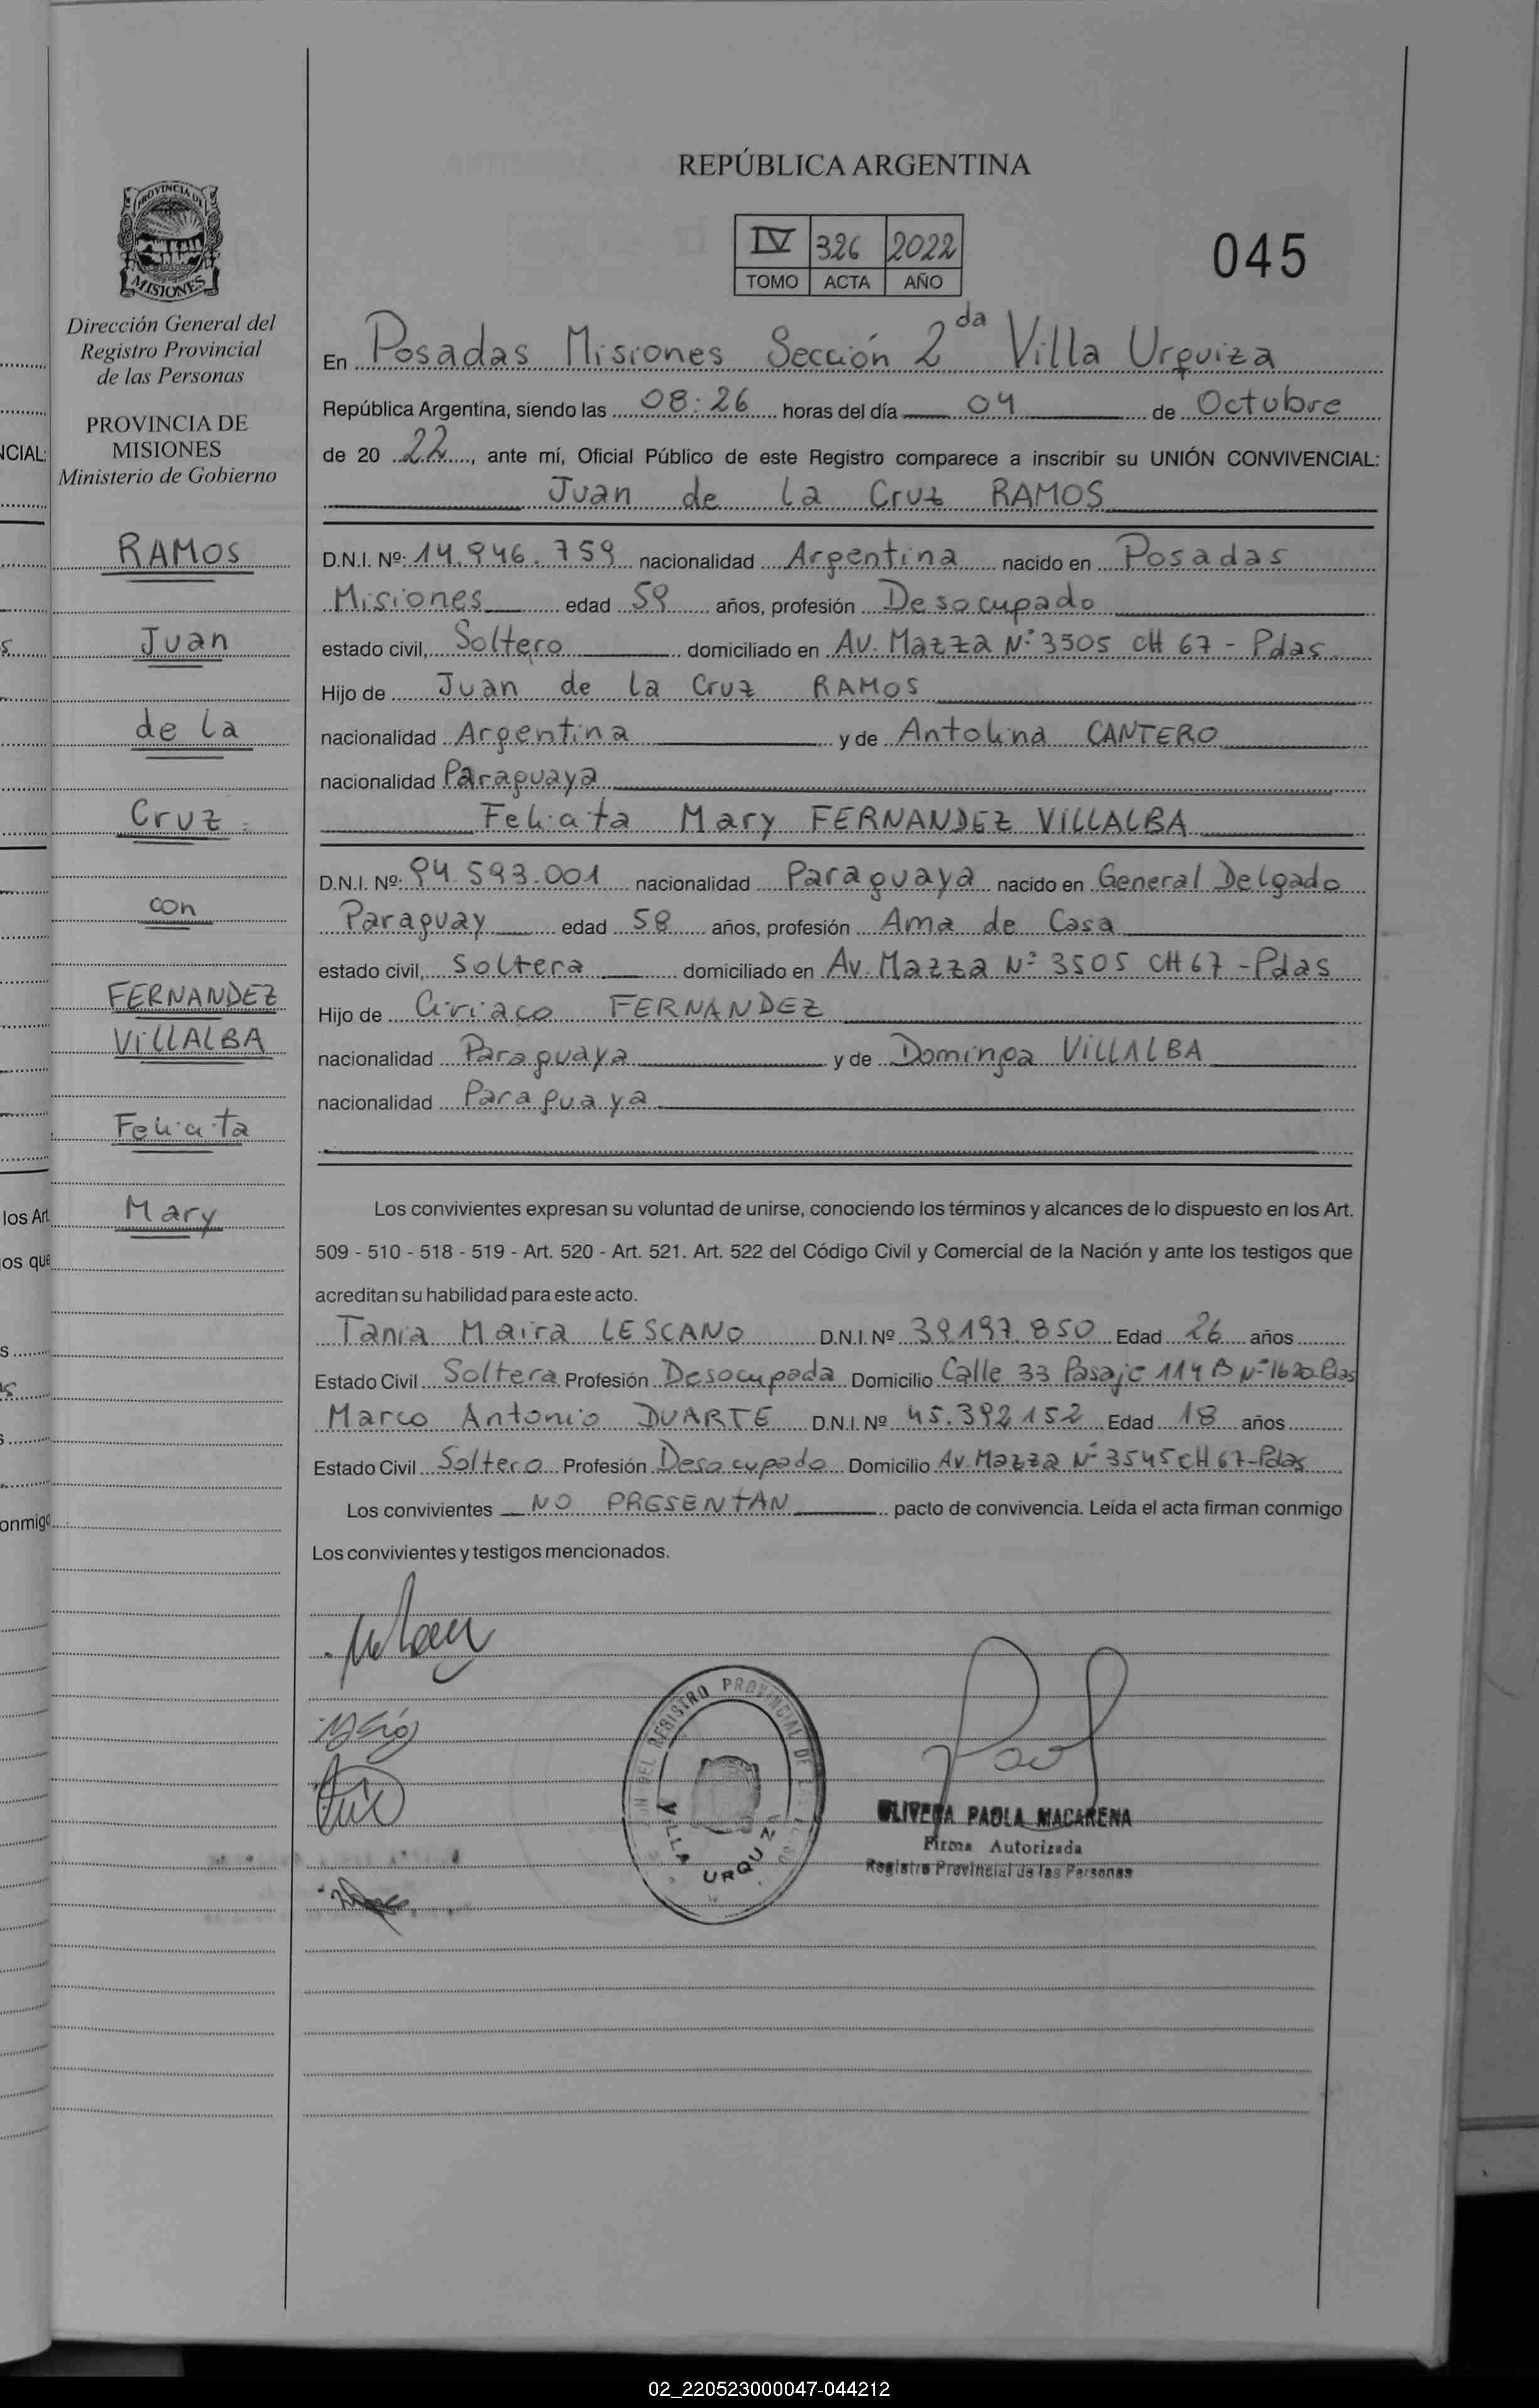 REPÚBLICA ARGENTINA
IV 326 2022
TOMO ACTA AÑO
045
PROVINCIA DE
MISIONES
Dirección General del
Registro Provincial
de las Personas
PROVINCIA DE
MISIONES
Ministerio de Gobierno
RAMOS
Juan
de la
Cruz
con
FERNANDEZ
VILLALBA
Feliciata
Mary
En Posadas Misiones Sección 2da Villa Urquiza
República Argentina, siendo las 08:26 horas del día 04 de Octubre
de 20 22, ante mí, Oficial Público de este Registro comparece a inscribir su UNIÓN CONVIVENCIAL:
Juan de la Cruz RAMOS
D.N.I. Nº: 14.946.759 nacionalidad Argentina nacido en Posadas
Misiones edad 59 años, profesión Desocupado
estado civil, Soltero domiciliado en Av. Mazza Nº 3505 CH 67 - Pdas.
Hijo de Juan de la Cruz RAMOS
nacionalidad Argentina y de Antolina CANTERO
nacionalidad Paraguaya
Feliciata Mary FERNANDEZ VILLALBA
D.N.I. Nº: 94.593.001 nacionalidad Paraguaya nacido en General Delgado
Paraguay edad 58 años, profesión Ama de Casa
estado civil, Soltera domiciliado en Av. Mazza Nº 3505 CH 67 - Pdas
Hijo de Ciriaco FERNANDEZ
nacionalidad Paraguaya y de Dominga VILLALBA
nacionalidad Paraguaya
Los convivientes expresan su voluntad de unirse, conociendo los términos y alcances de lo dispuesto en los Art.
509 - 510 - 518 - 519 - Art. 520 - Art. 521. Art. 522 del Código Civil y Comercial de la Nación y ante los testigos que
acreditan su habilidad para este acto.
Tania Maira LESCANO D.N.I. Nº 39.197.850 Edad 26 años
Estado Civil Soltera Profesión Desocupada Domicilio Calle 33 Pasaje 114 B Nº 1620-Pdas
Marco Antonio DUARTE D.N.I. Nº 45.392.152 Edad 18 años
Estado Civil Soltero Profesión Desocupado Domicilio Av. Mazza Nº 3545 CH 67-Pdas
Los convivientes NO PRESENTAN pacto de convivencia. Leída el acta firman conmigo
Los convivientes y testigos mencionados.
REGISTRO PROVINCIAL DE
VILLA URQUIZA
OLIVERA PAOLA MACARENA
Firma Autorizada
Registro Provincial de las Personas
NCIAL:
los Art.
os que
onmigo
02_220523000047-044212